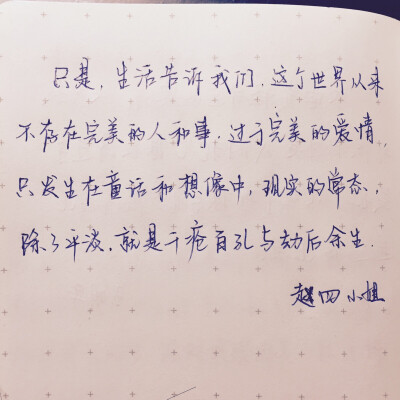 只是，生活告诉我们，这个世界从来
不存在完美的人和事，过于完美的爱情，
只发生在童话和想像中，现实的常态，
除了平淡，就是千疮百孔与劫后余生．
赵四小姐